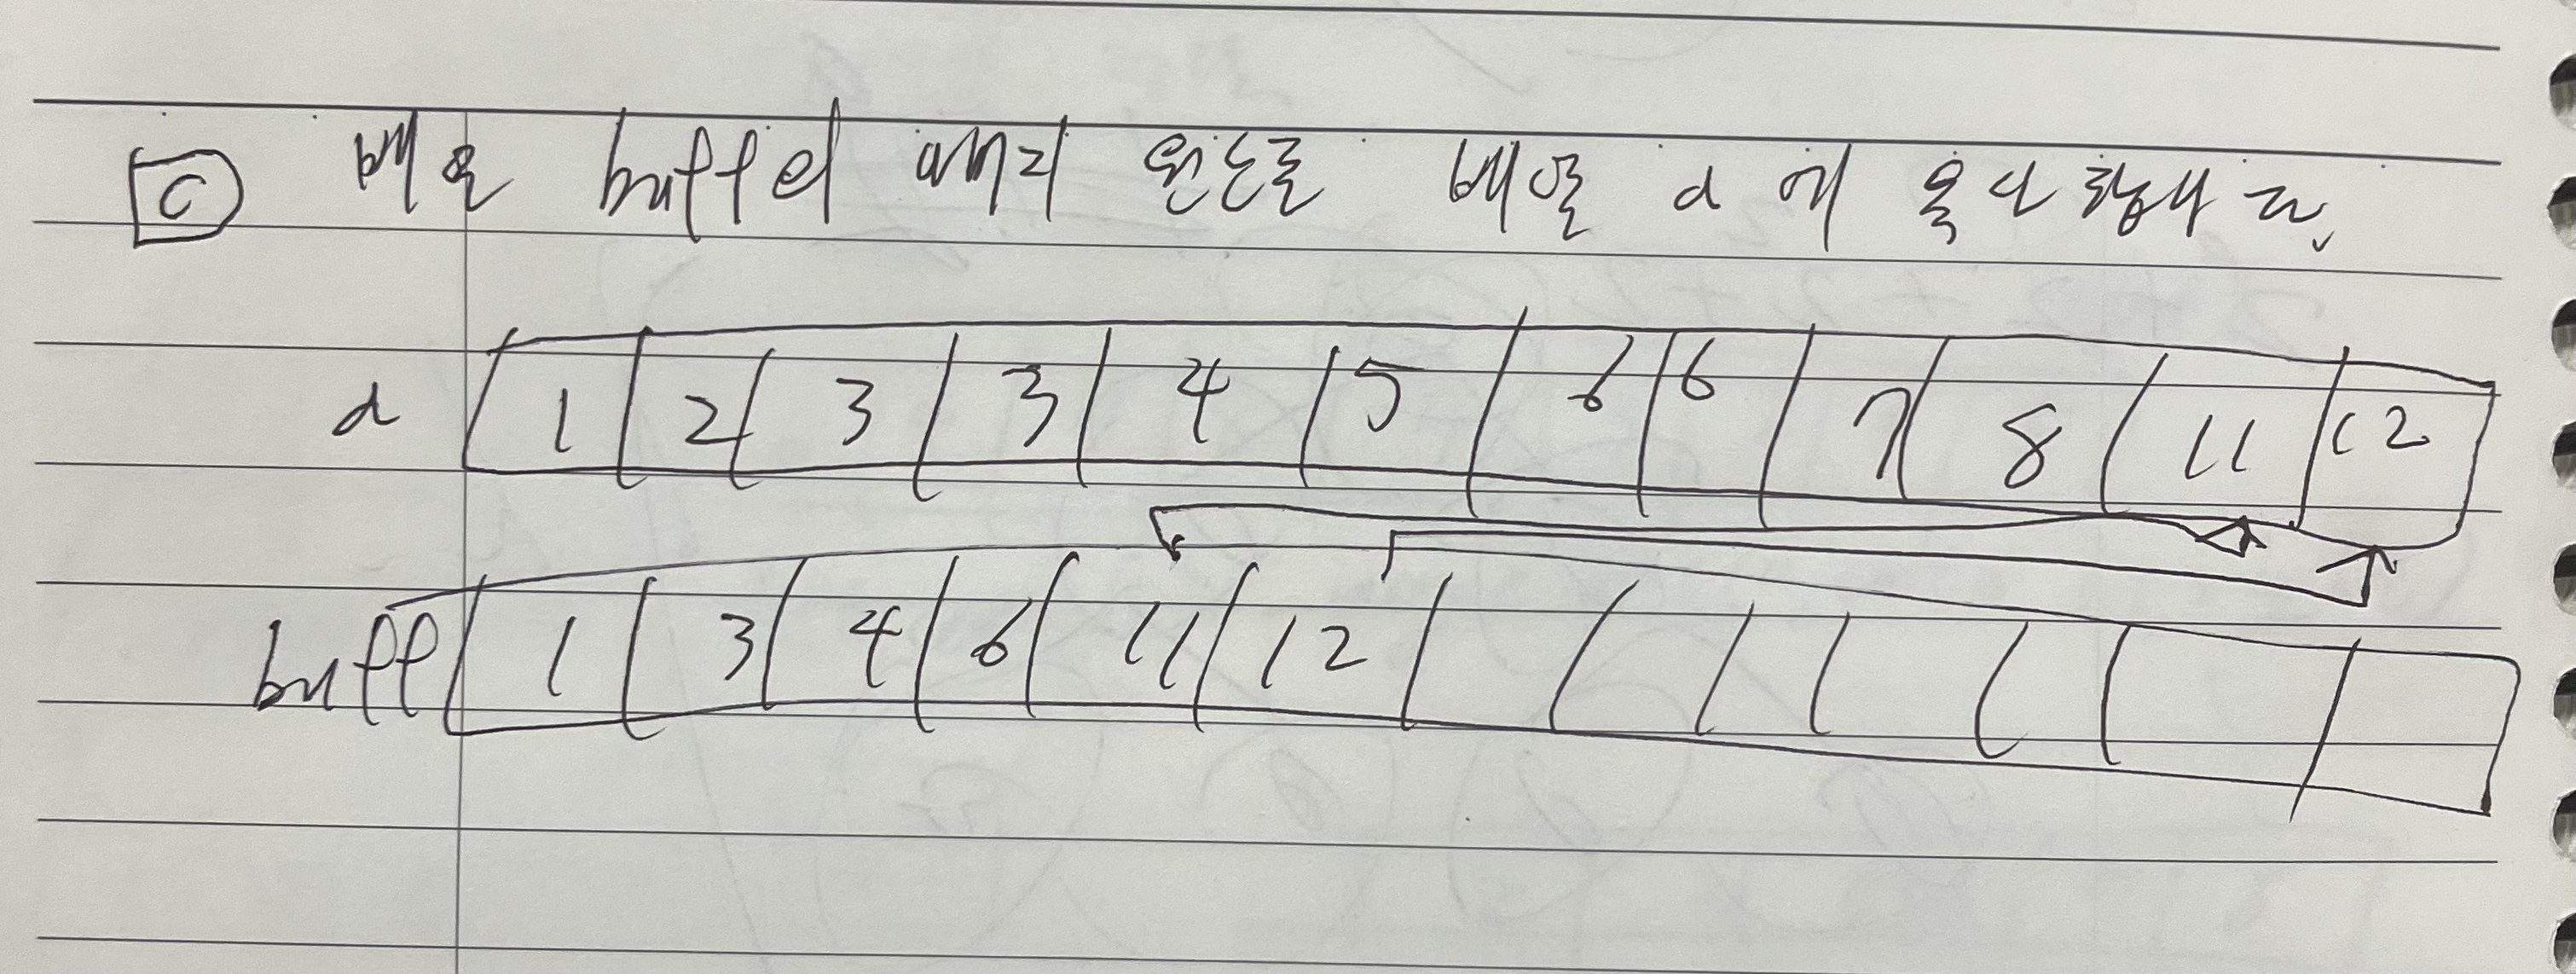 C 배열 buff의 나머지 원소를 배열 d에 복사합니다.
d 1 2 3 3 4 5 6 6 7 8 11 12
buff 1 3 4 6 11 12